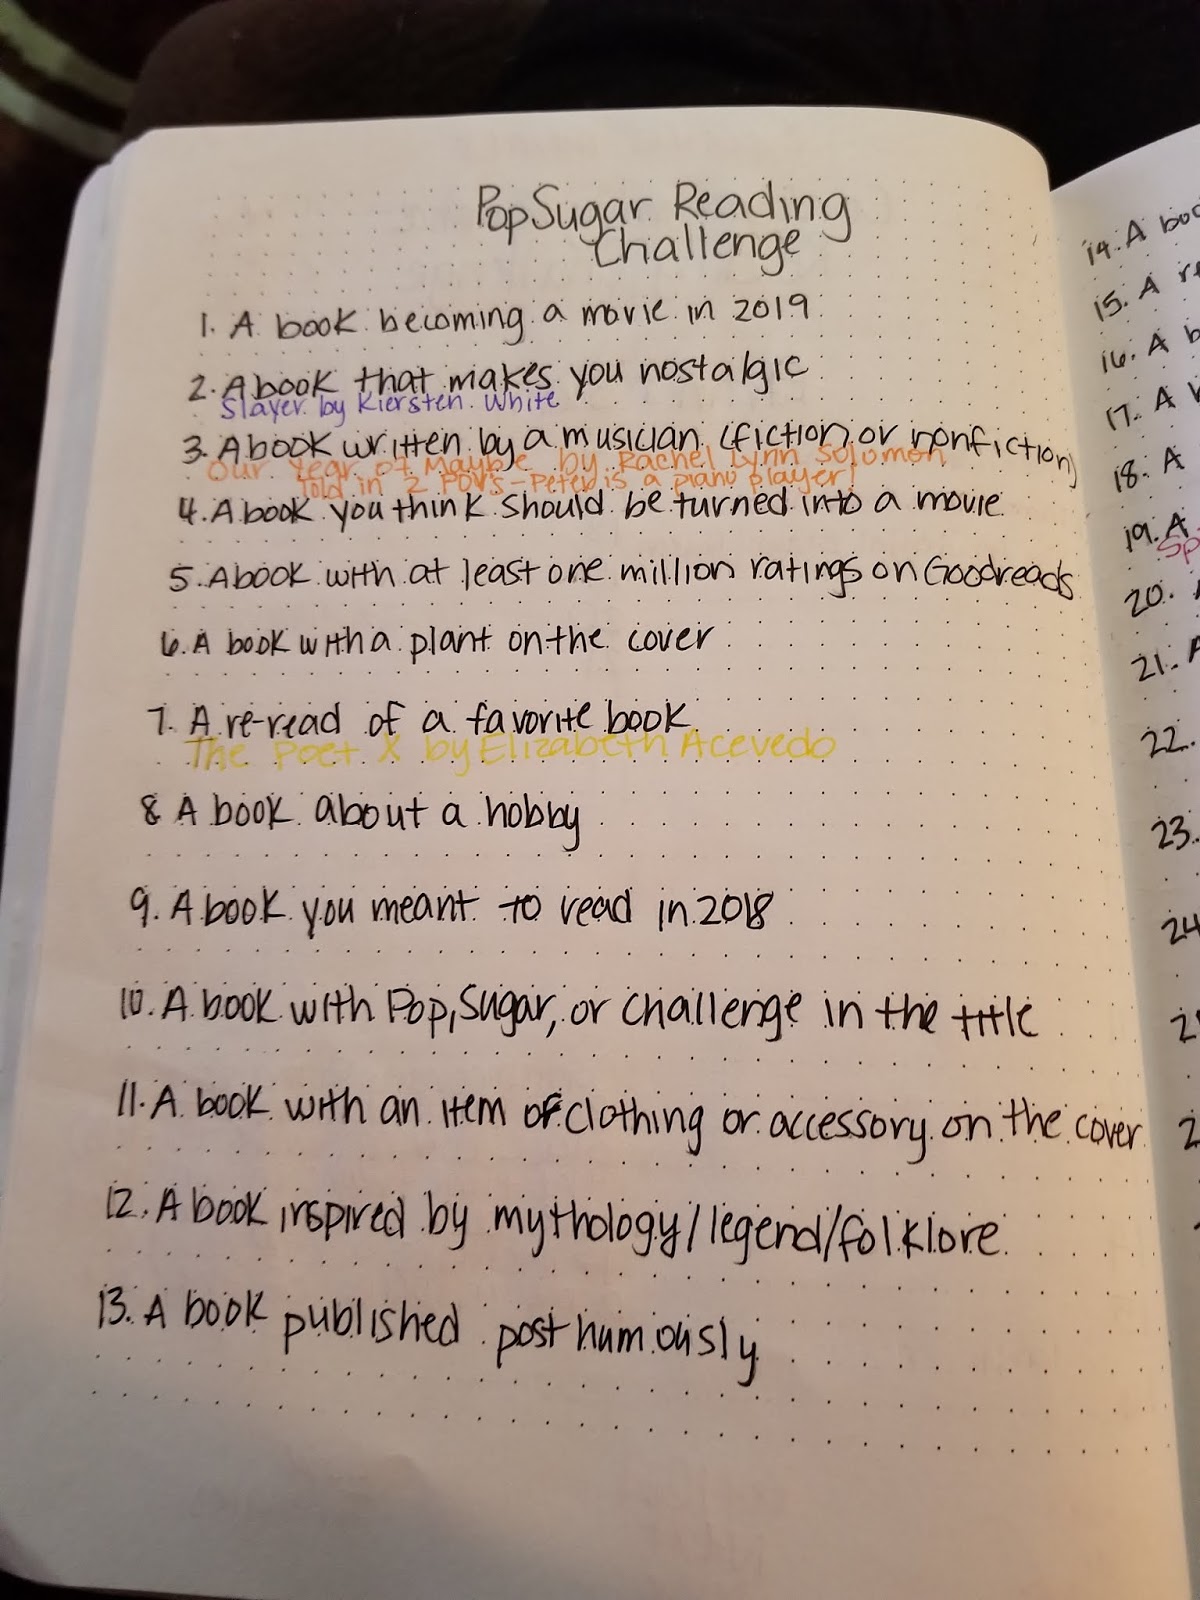 PopSugar Reading
Challenge
1. A book becoming a movie in 2019
2. A book that makes you nostalgic
Slayer by Kiersten White
3. A book written by a musician (fiction or nonfiction)
Our Year of Maybe by Rachel Lynn Solomon
Told in 2 POVs - Peter is a piano player!
4. A book you think should be turned into a movie
5. A book with at least one million ratings on Goodreads
6. A book with a plant on the cover
7. A re-read of a favorite book
The Poet X by Elizabeth Acevedo
8 A book about a hobby
9. A book you meant to read in 2018
10. A book with Pop, Sugar, or Challenge in the title
11. A book with an item of clothing or accessory on the cover
12. A book inspired by mythology/legend/folklore
13. A book published posthumously
14. A boo
15. A re
16. A b
17. A
18. A
19. A
Sp
20.
21. A
22.
23.
24